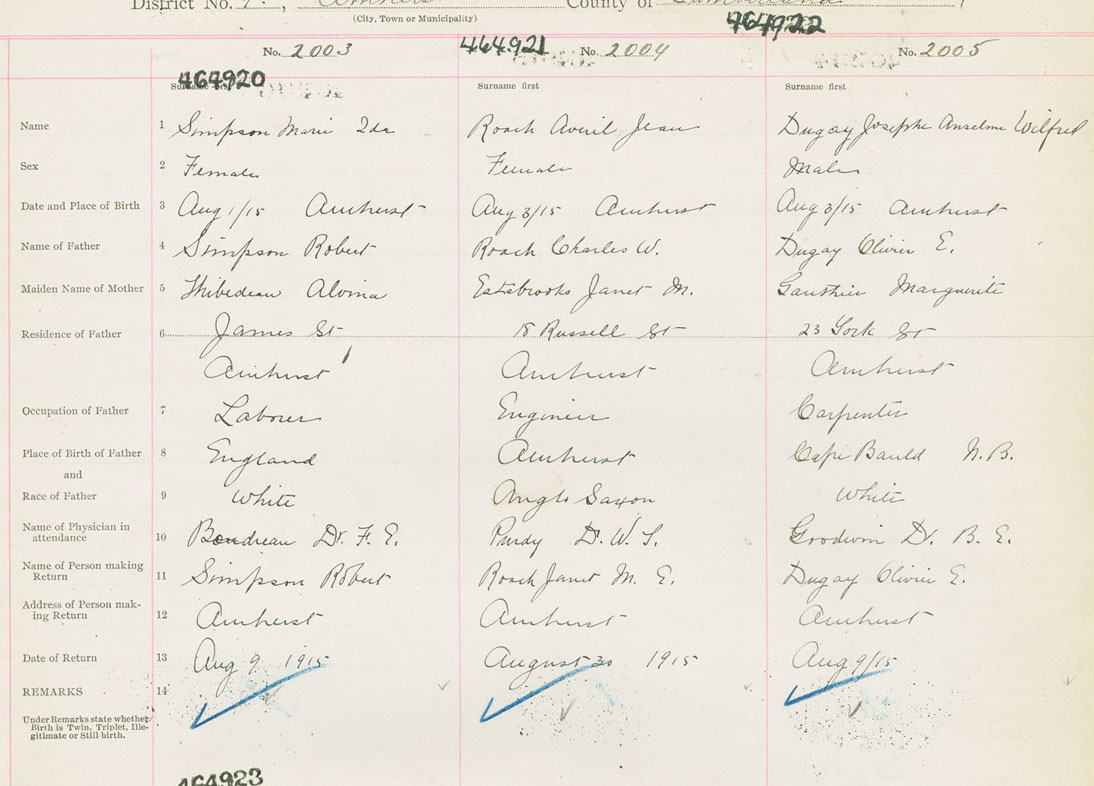 District No. 7., Amherst County of Cumberland
(City, Town or Municipality)
464922
No. 2003 464921 No. 2004 No. 2005
464920
Surname first Surname first Surname first
Name 1 Simpson Marie Ida Roach Averil Jean Dugay Josephe Anselme Wilfred
Sex 2 Female Female Male
Date and Place of Birth 3 Aug 1/15 Amherst Aug 3/15 Amherst Aug 3/15 Amherst
Name of Father 4 Simpson Robert Roach Charles W. Dugay Olivier E.
Maiden Name of Mother 5 Thibedeau Alvina Estabrooks Janet M. Gauthier Marguerite
Residence of Father 6 James St 18 Russell St 23 York St
Amherst Amherst Amherst
Occupation of Father 7 Laborer Engineer Carpenter
Place of Birth of Father 8 England Amherst Cape Bauld N.B.
and
Race of Father 9 White Anglo Saxon White
Name of Physician in attendance 10 Boudreau Dr. F. E. Purdy D. W. S. Goodwin Dr. B. E.
Name of Person making Return 11 Simpson Robert Roach Janet M. E. Dugay Olivier E.
Address of Person mak-ing Return 12 Amherst Amherst Amherst
Date of Return 13 Aug 9 1915 August 30 1915 Aug 9/15
REMARKS 14
Under Remarks state whether
Birth is Twin, Triplet, Ille-
gitimate or Still-birth.
464923